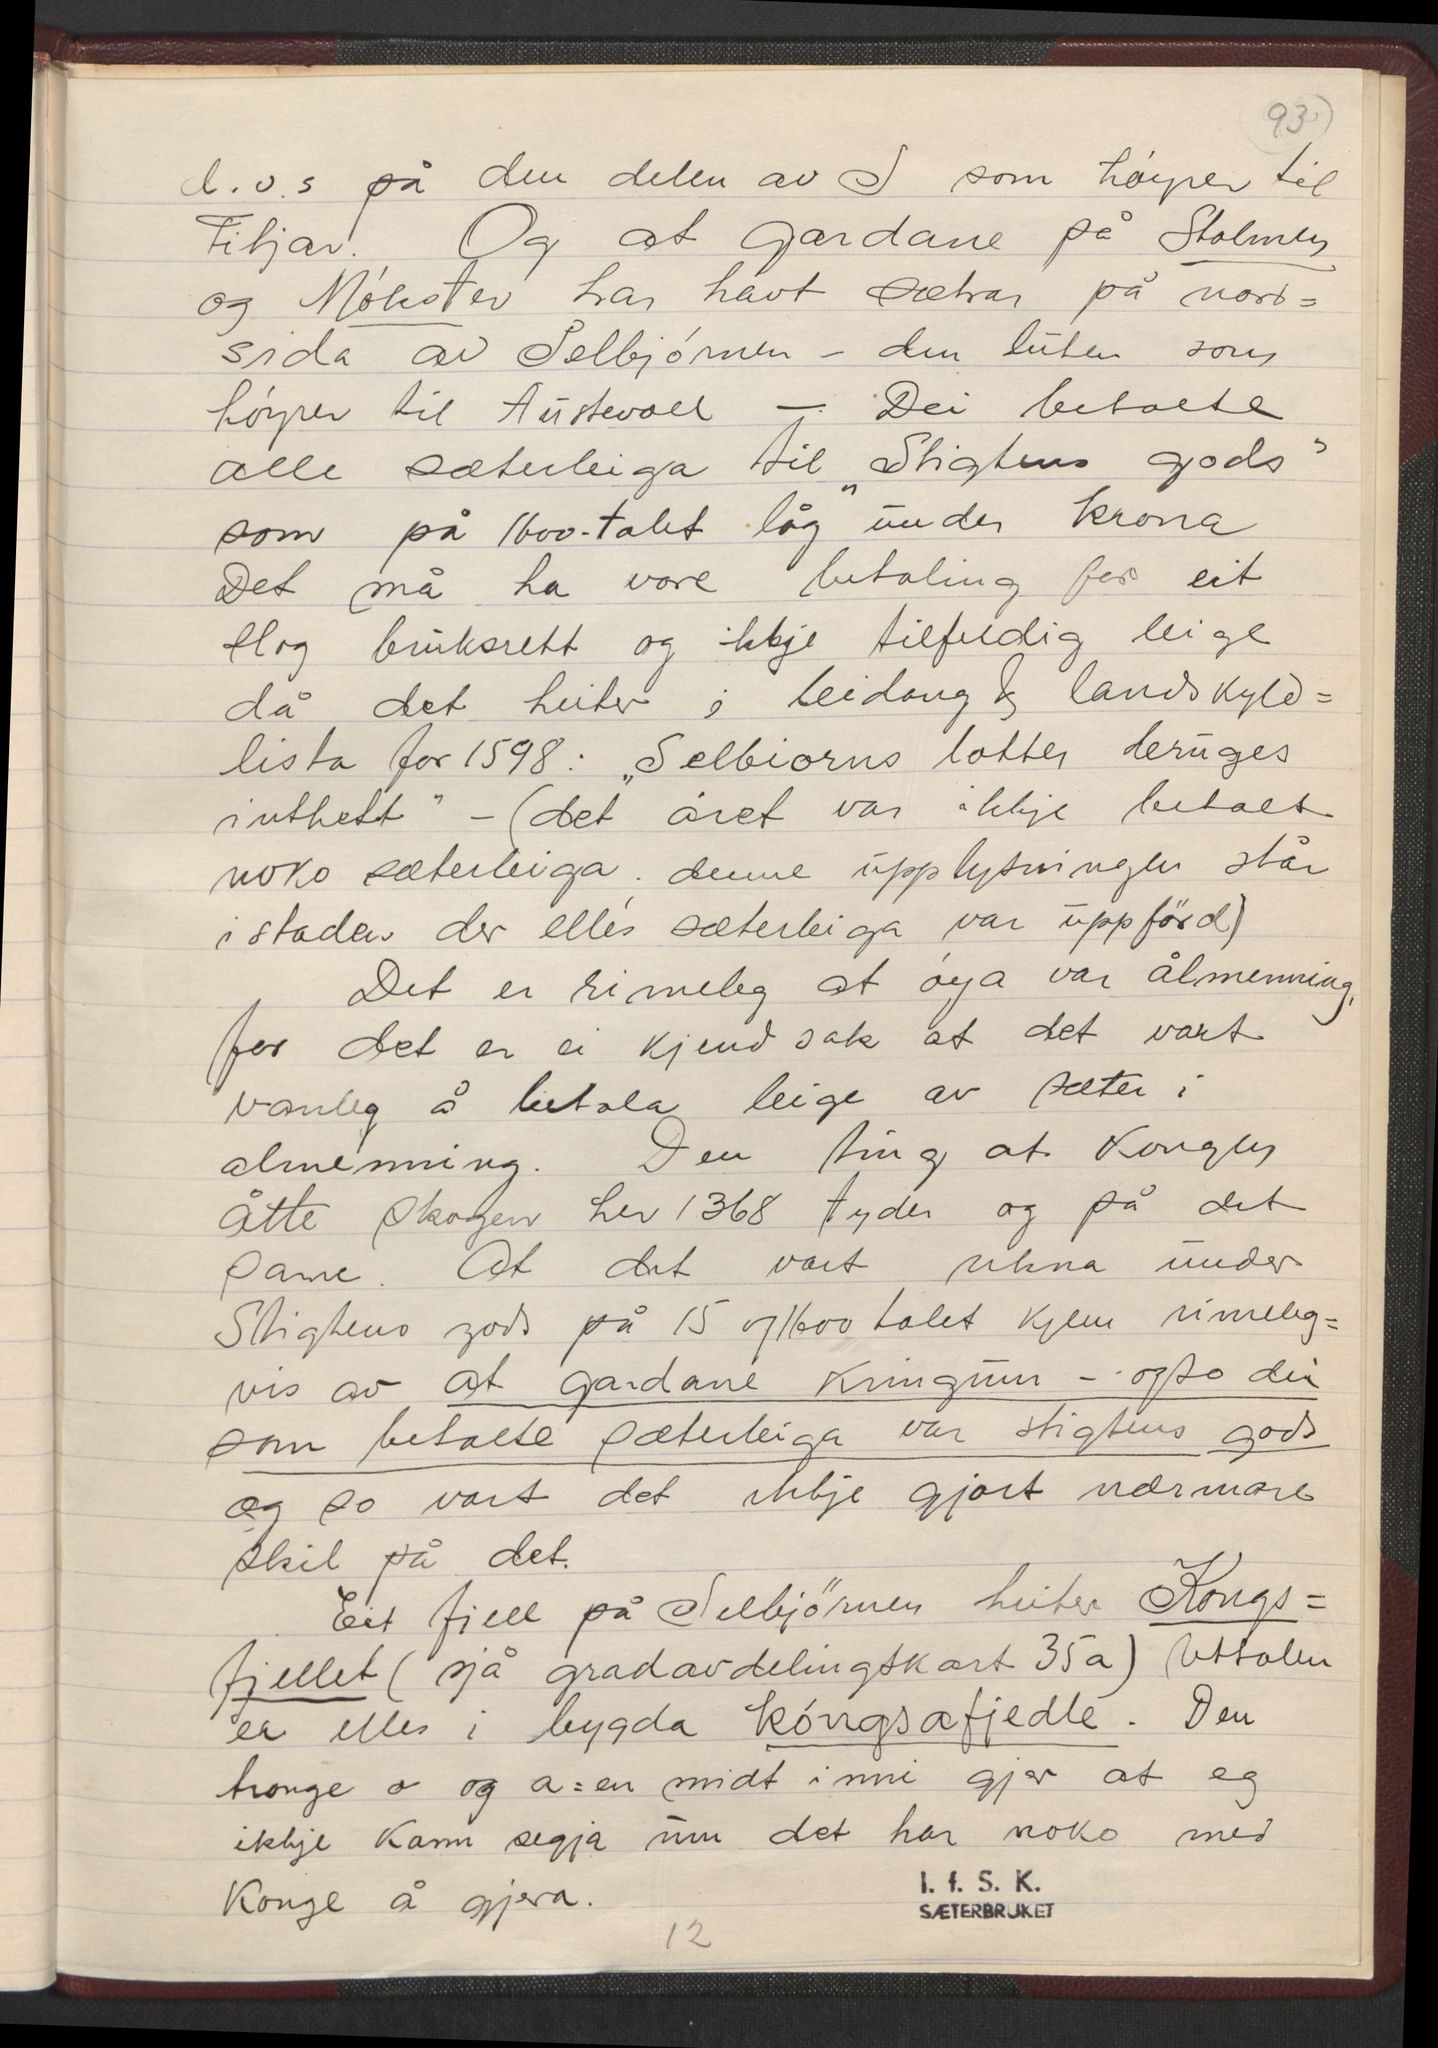 93
d.v.s på den delen av S som høyrer til
Fitjar. Og at gardane på Stolmen
og Møkster har havt sætrar på nord=
sida av Selbjørnen - den luten som
høyrer til Austevoll - Dei betalte
alle sæterleiga til "Stigtens gods"
som på 1600-talet låg under krona
Det må ha vore betaling for eit
slag bruksrett og ikkje tilfeldig leige
då det heiter i leidang & landskyld=
lista for 1598: "Selbiorns lotter deruges
inthett" - (det året var ikkje betalt
noko sæterleiga. denne upplysningen står
i staden der elles sæterleiga var uppförd)
Det er rimeleg at øya var ålmenning,
for det er ei kjend sak at det vart
vanleg å betala leige av sæter i
almenning. Den ting at Kongen
åtte skogen her 1368 tyder og på det
same. At det vart rekna under
Stigtens gods på 15 og 1600 talet kjem rimeleg=
vis av at gardane kringum - ogso dei
som betalte sæterleiga var stigtens gods
og so vart det ikkje gjort nærmare
skil på det.
Eit fjell på Selbjörnen heiter Kongs=
fjellet (sjå gradavdelingskart 35a) Uttalen
er elles i bygda kóngsafjedle. Den
tronge o og a=en midt inni gjer at eg
ikkje kann segja um det har noko med
Konge å gjera.
I. f. S. K.
SÆTERBRUKET
12